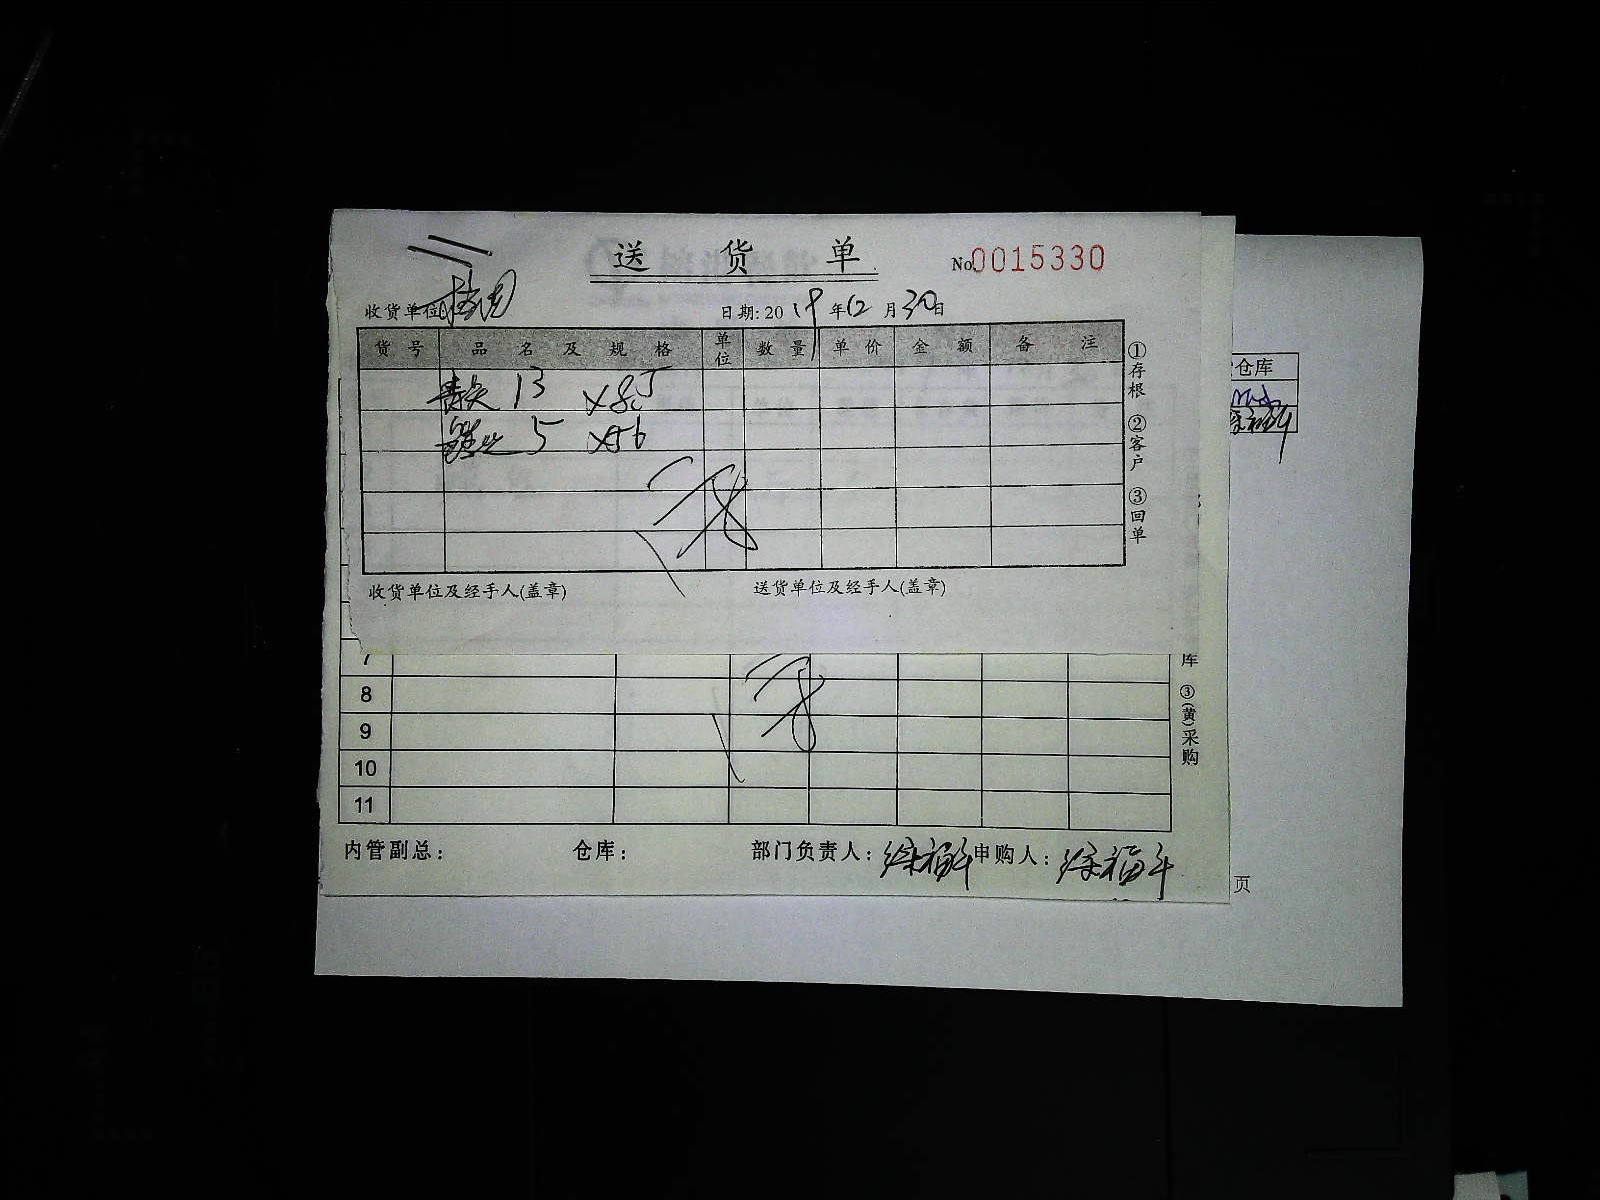 送 货 单 No.0015330
收货单位: 日期: 2019年12月30日
货 号 品 名 及 规 格 单位 数 量 单 价 金 额 备 注
青尖 13 x8.5
5 x56
①存根 ②客户 ③回单
收货单位及经手人(盖章) 送货单位及经手人(盖章)
仓库
7
8
9
10
11
库 ③(黄)采购
内管副总: 仓库: 部门负责人: 徐福斗 申购人: 徐福斗
页